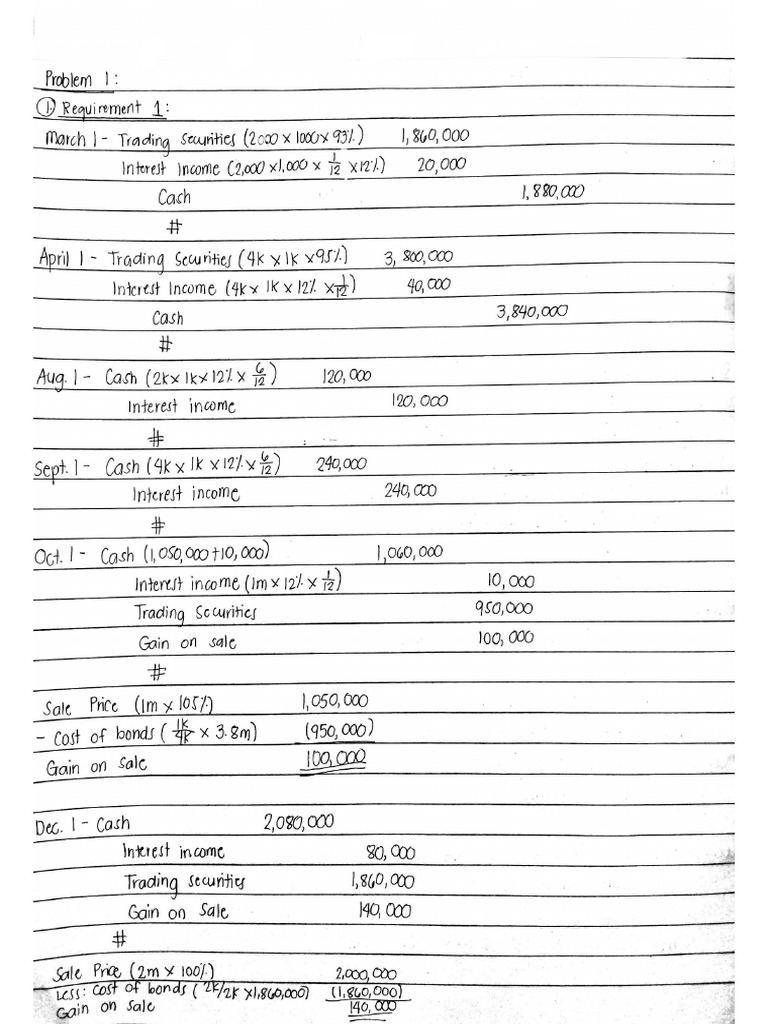 Problem 1:
① Requirement 1:
March 1 - Trading Securities (2000 x 1000 x 93%) 1,860,000
Interest Income (2,000 x 1,000 x 1/12 x 12%) 20,000
Cash 1,880,000
#
April 1 - Trading Securities (4k x 1k x 95%) 3,800,000
Interest Income (4k x 1k x 12% x 1/12) 40,000
Cash 3,840,000
#
Aug. 1 - Cash (2k x 1k x 12% x 6/12) 120,000
Interest income 120,000
#
Sept. 1 - Cash (4k x 1k x 12% x 6/12) 240,000
Interest income 240,000
#
Oct. 1 - Cash (1,050,000 + 10,000) 1,060,000
Interest income (1m x 12% x 1/12) 10,000
Trading Securities 950,000
Gain on sale 100,000
#
Sale Price (1m x 105%) 1,050,000
- Cost of bonds (1k/4k x 3.8m) (950,000)
Gain on sale 100,000
Dec. 1 - Cash 2,080,000
Interest income 80,000
Trading securities 1,860,000
Gain on Sale 140,000
#
Sale Price (2m x 100%) 2,000,000
Less: Cost of bonds (2k/2k x 1,860,000) (1,860,000)
Gain on sale 140,000